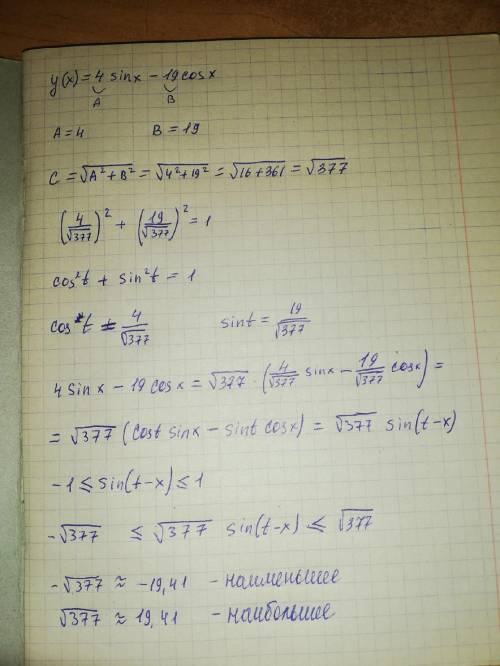 y(x) = 4 sinx − 19 cosx
A B
A = 4 B = 19
C = √(A² + B²) = √(4² + 19²) = √(16 + 361) = √377
(4/√377)² + (19/√377)² = 1
cos²t + sin²t = 1
cos t = 4/√377 sint = 19/√377
4 sinx − 19 cosx = √377 · (4/√377 sinx − 19/√377 cosx) =
= √377 (cost sinx − sint cosx) = √377 sin(t−x)
−1 ≤ sin(t−x) ≤ 1
−√377 ≤ √377 sin(t−x) ≤ √377
−√377 ≈ −19,41 − наименьшее
√377 ≈ 19,41 − наибольшее